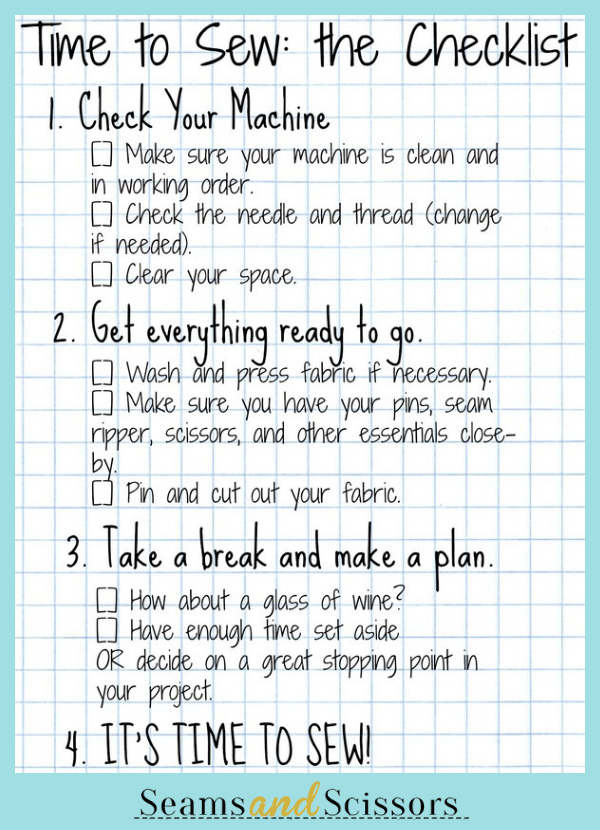 Time to Sew: the Checklist
1. Check Your Machine
Make sure your machine is clean and
in working order.
Check the needle and thread (change
if needed).
Clear your space.
2. Get everything ready to go.
Wash and press fabric if necessary.
Make sure you have your pins, seam
ripper, scissors, and other essentials close-
by.
Pin and cut out your fabric.
3. Take a break and make a plan.
How about a glass of wine?
Have enough time set aside
OR decide on a great stopping point in
your project.
4. IT'S TIME TO SEW!
Seams and Scissors